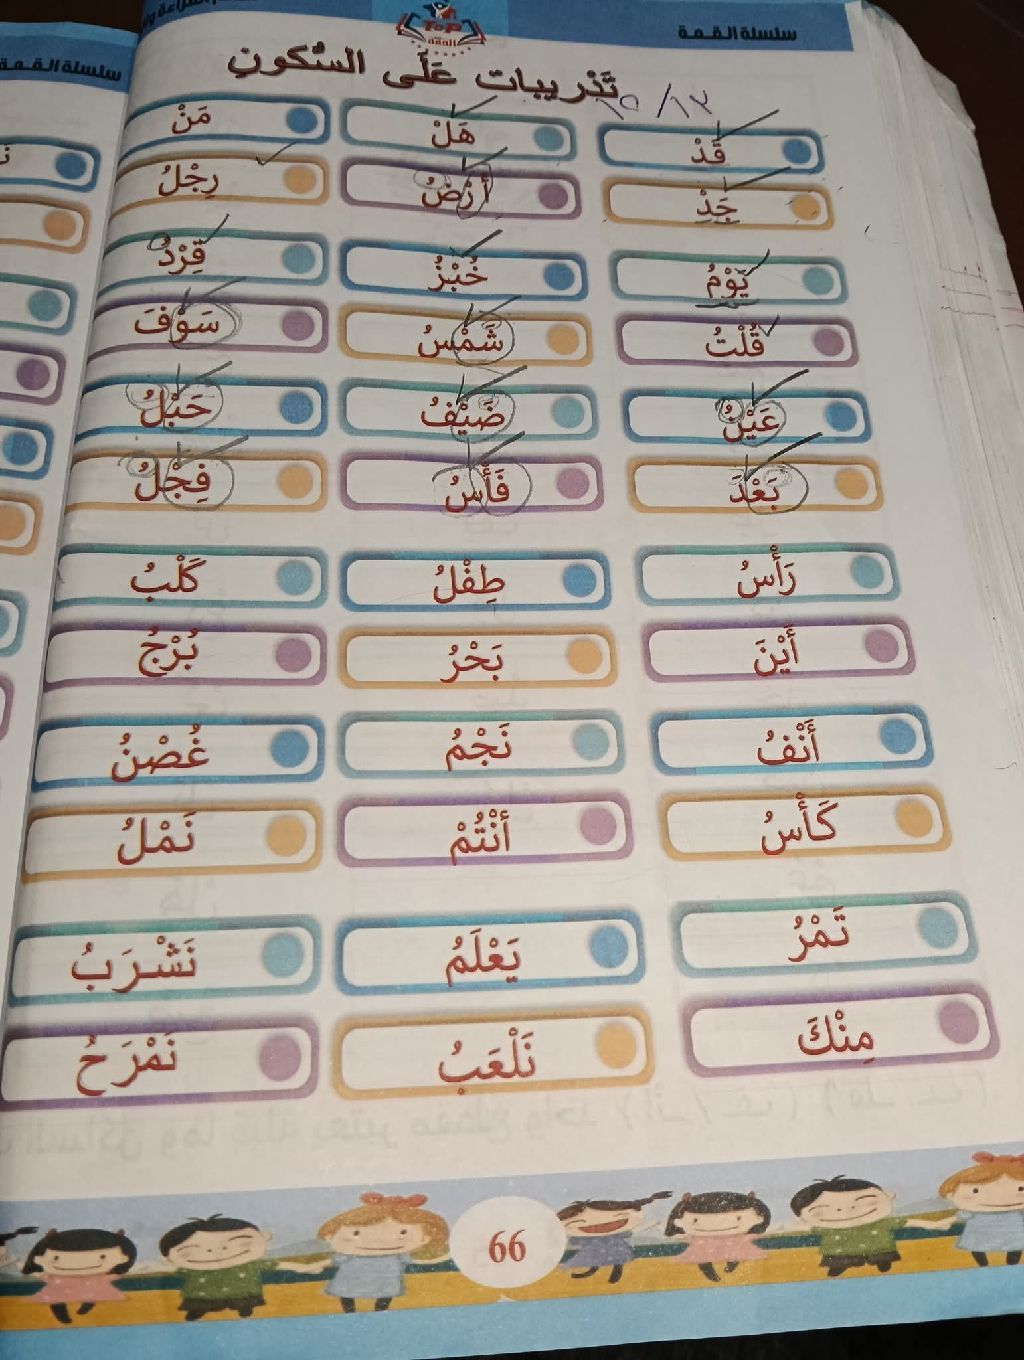 سلسلة القمة
سلسلة القمة
TOP
القمة
تَدْريبات عَلَى السُّكونِ
١٥ / ١٢
قَدْ هَلْ مَنْ
جَدِّ أَرْضُ رِجْلُ
يَوْمُ خُبْزُ قِرْدُ
قُلْتُ شَمْسُ سَوْفَ
عَيْنُ ضَيْفُ حَبْلُ
بَعْدَ فَأْسُ فِجْلُ
رَأْسُ طِفْلُ كَلْبُ
أَيْنَ بَحْرُ بُرْجُ
أَنْفُ نَجْمُ غُصْنُ
كَأْسُ أنْتُمْ نَمْلُ
تَمْرُ يَعْلَمُ نَشْرَبُ
مِنْكَ نَلْعَبُ نَمْرَحُ
66